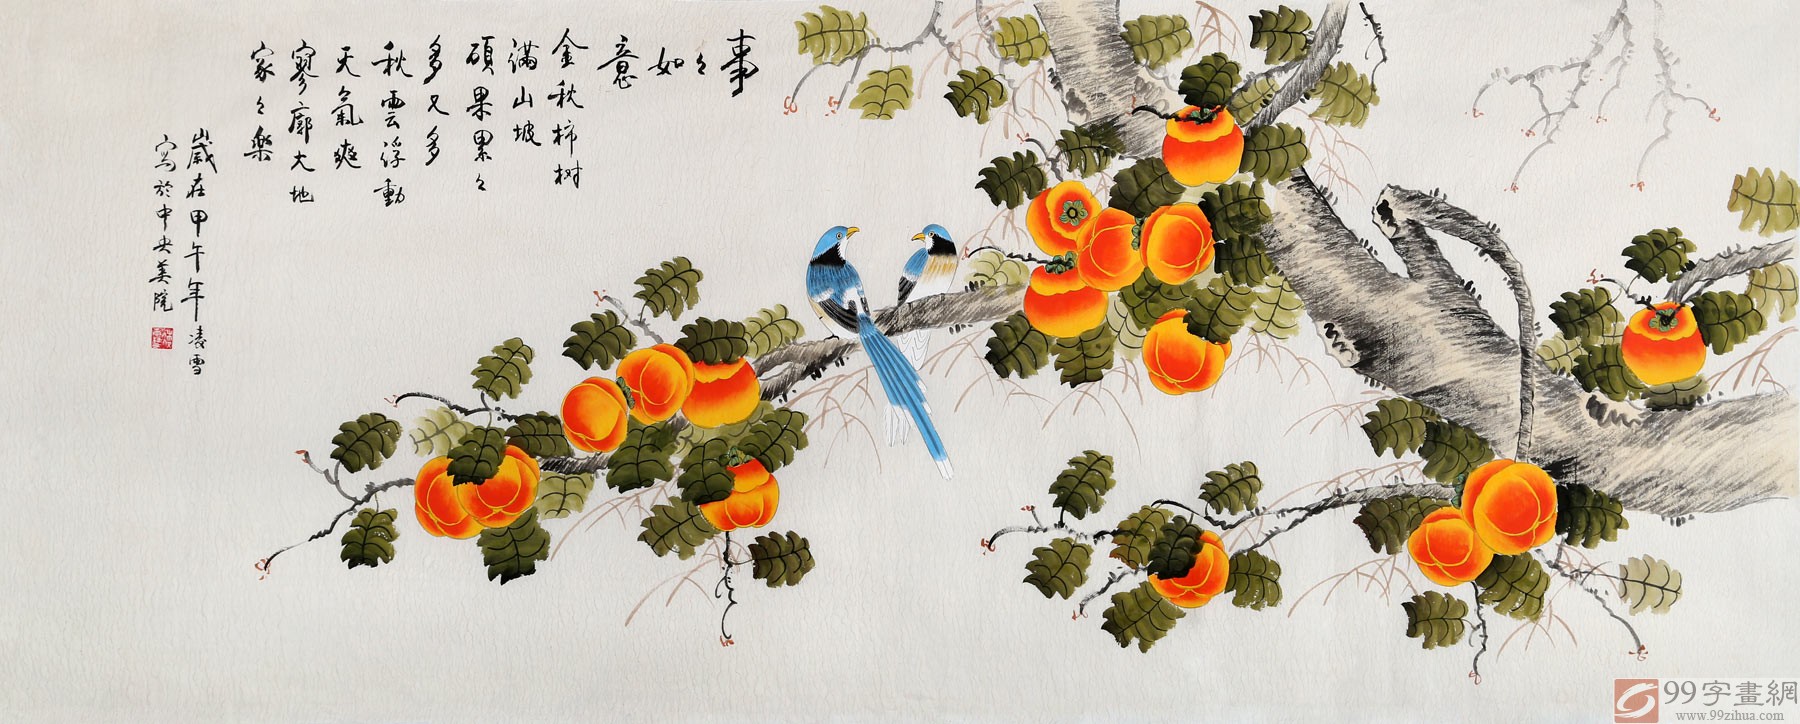 事々如意
金秋柿树
满山坡
碩果累々
多又多
秋雲浮動
天氣爽
寥廓大地
家々樂
歲在甲午年凌雪
寫於中央美院
99字畫網
www.99zihua.com